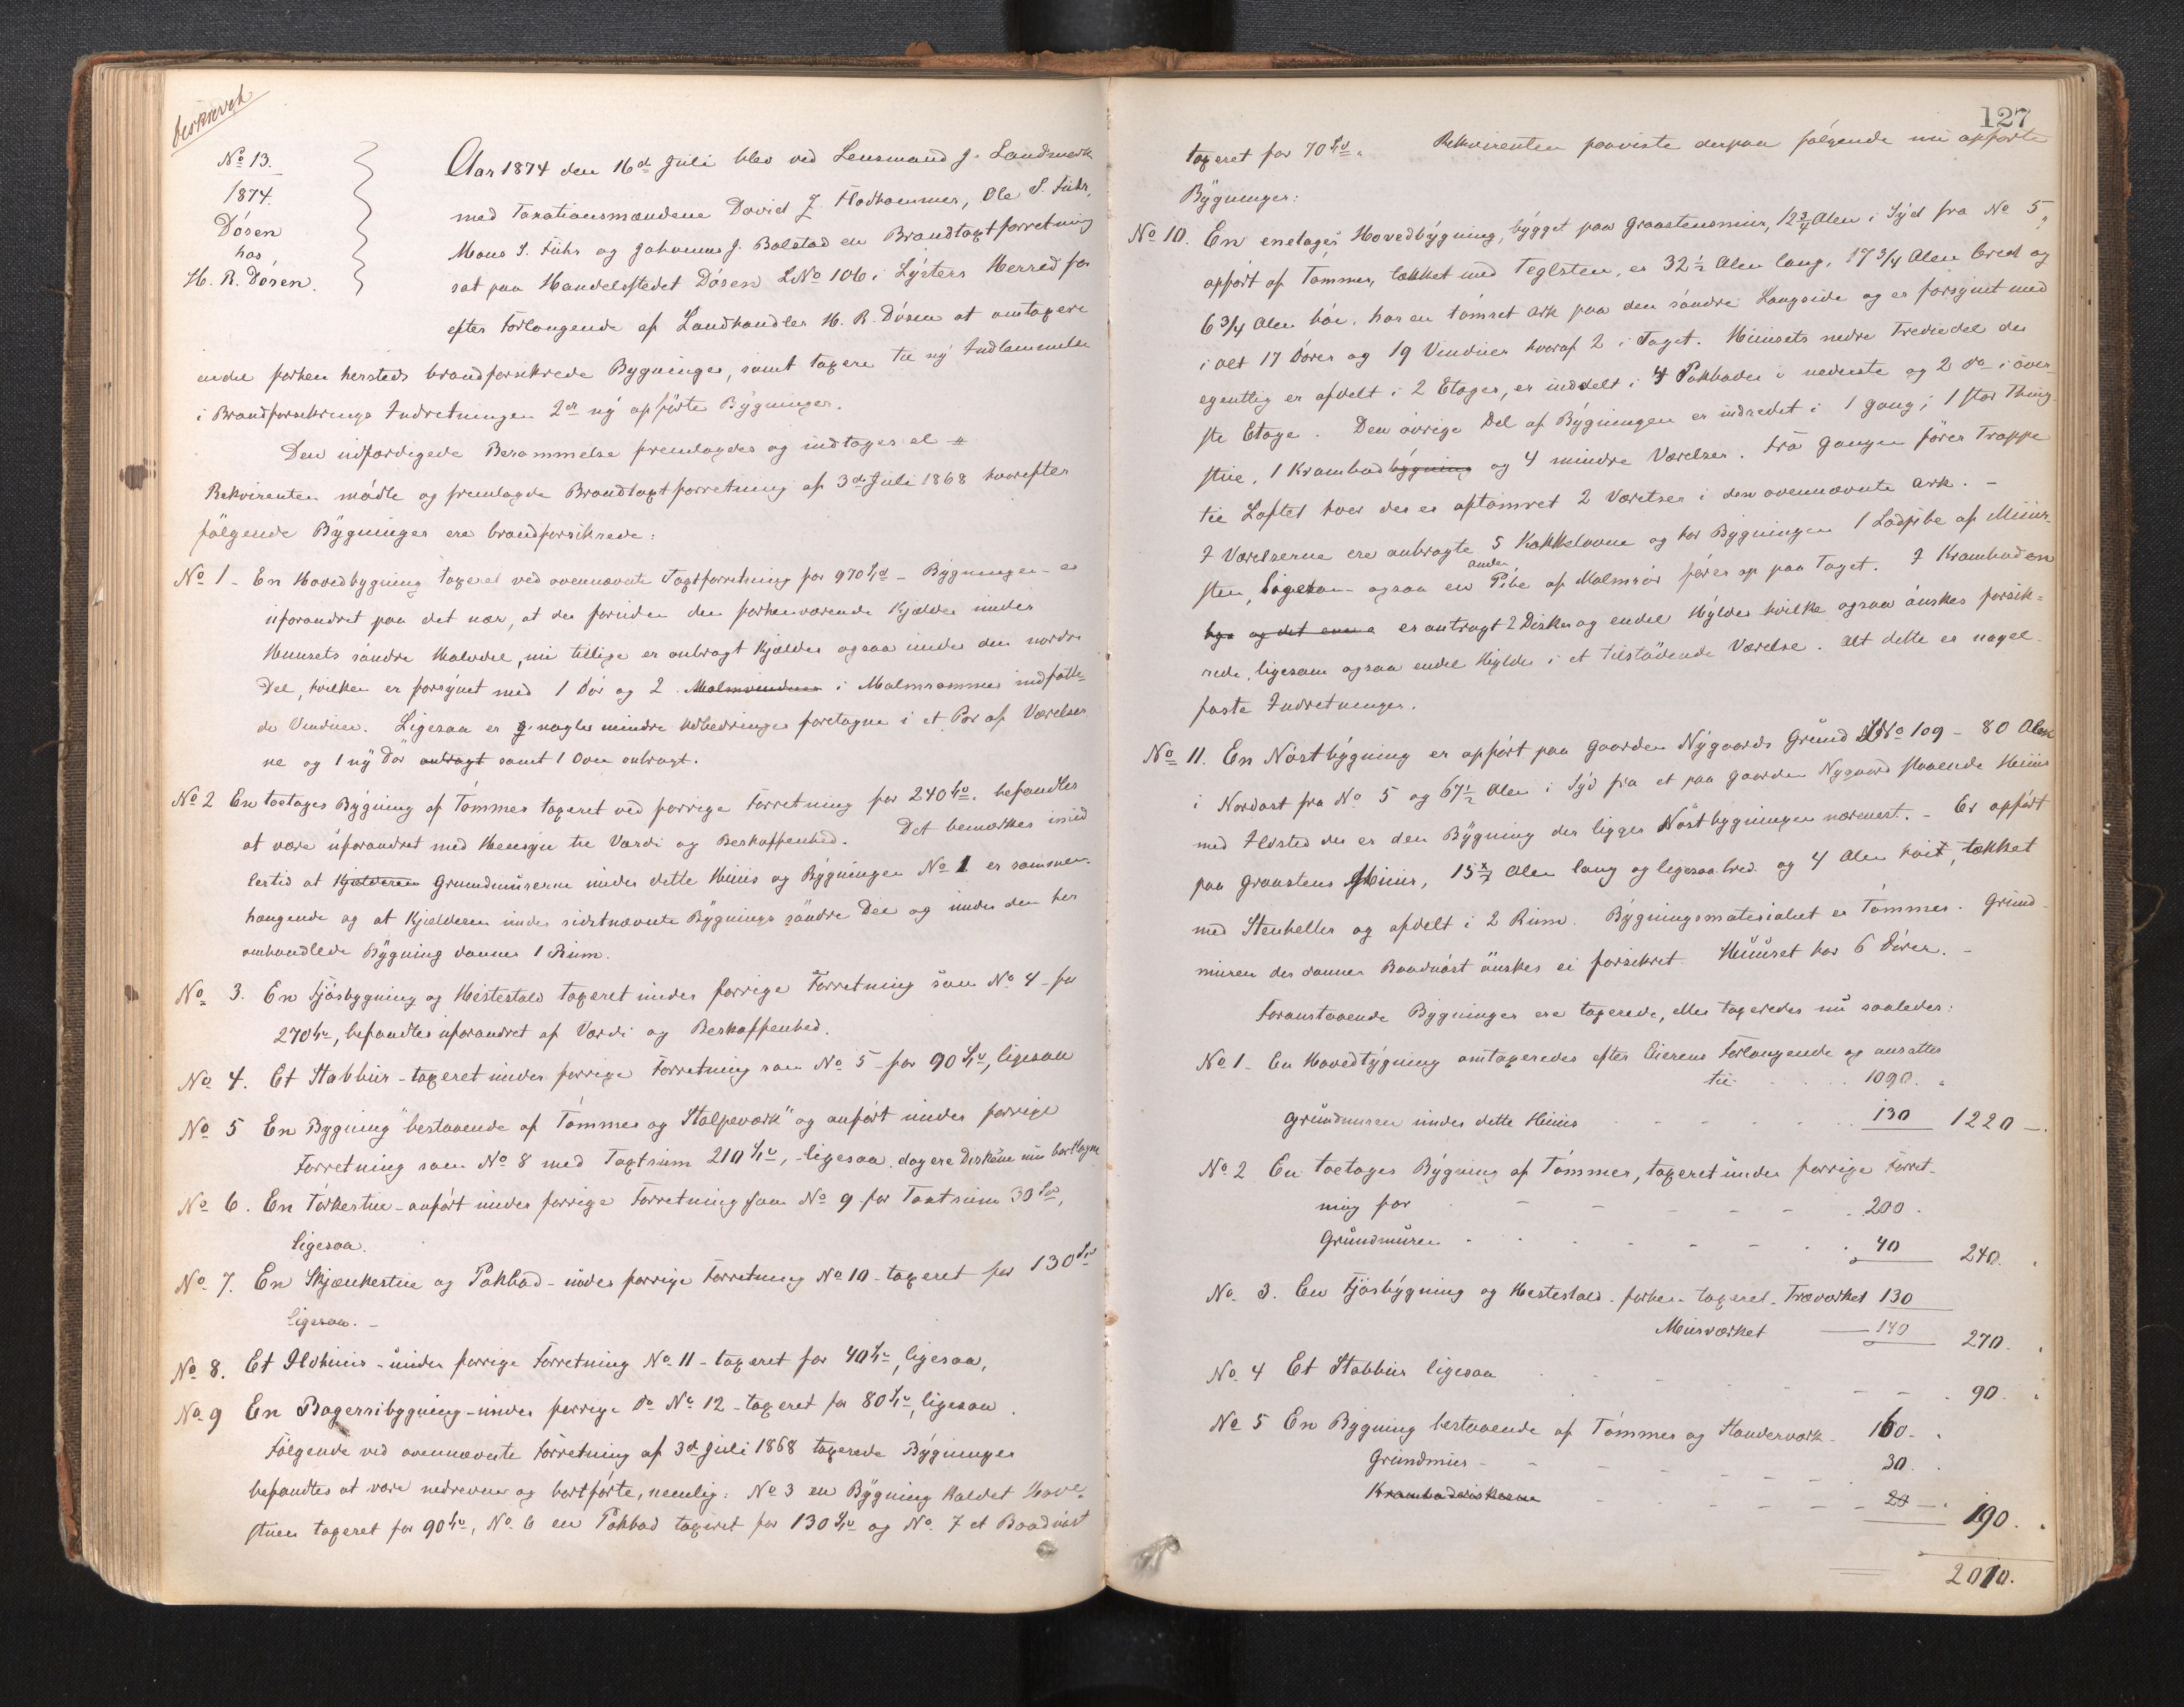 beskrevet
No 13.
1874.
Døsen
hos
H. R. Døsen.
Aar 1874 den 16d Juli blev ved Lensmand J. Landmark
med Taxationsmændene David J. Flodhammer, Ole S. Fuhr,
Mons S. Fuhr og Johannes J. Bolstad en Brandtaxtforretning
sat paa Handelsstedet Døsen LNo 106 i Lysters Herred for
efter Forlangende af Landhandler H. R. Døsen at omtaxere
endel forhen hersteds brandforsikrede Bygninger, samt taxere til ny Indlemmelse
i Brandforsikrings Indretningen 2de ny opførte Bygninger.
Den udfærdigede Berammelse fremlagdes og indtages el
Rekvirenten mødte og fremlagde Brandtaxtforretning af 3d Juli 1868 hvorefter
følgende Bygninger ere brandforsikrede:
No 1 - En Hovedbygning taxeret ved ovennævnte Taxtforretning for 970 Spd - Bygningen er
uforandret paa det nær, at der foruden den forhenværende Kjælder under
Huusets søndre Halvdel, nu tillige er anbragt Kjælder ogsaa under den nordre
Del, hvilken er forsynet med 1 Dør og 2 Malmvinduer i Malmrammer indfatte-
de Vinduer. Ligesaa er nogle mindre Udbedringer foretagne i et Par af Værelser
ne og 1 ny Dør anbragt samt 1 Ovn anbragt.
No 2 En toetages Bygning af Tømmer taxeret ved forrige Forretning for 240 Spd. befandtes
at være uforandret med Hensyn til Værdi og Beskaffenhed. Det bemærkes imid
lertid at Kjælderen Grundmurerne under dette Huus og Bygningen No 1 er sammen-
hængende og at Kjælderen under sidstnævnte Bygnings søndre Del og under den her
omhandlede Bygning danner 1 Rum.
No 3. En Fjøsbygning og Hestestald taxeret under forrige Forretning som No 4 - for
270 Spd, befandtes uforandret af Værdi og Beskaffenhed.
No 4. Et Stabbur - taxeret under forrige Forretning som No 5 - for 90 Spd, ligesaa
No 5 En Bygning "bestaaende af Tømmer og Stolpeværk" og anført under forrige
Forretning som No 8 med Taxtsum 210 Spd, - ligesaa, dog ere Diskene nu borttagne
No 6. En Tørkestue - anført under forrige Forretning som No 9 for Taxtsum 30 Spd,
ligesaa.
No 7. En Skjænkestue og Pakbod - under forrige Forretning No 10 - taxeret for 130 Spd
ligesaa. -
No 8. Et Ildhuus - under forrige Forretning No 11 - taxeret for 40 Spd, ligesaa,
No 9 En Bageribygning - under forrige Do No 12 - taxeret for 80 Spd, ligesaa.
Følgende ved ovennævnte Forretning af 3d Juli 1868 taxerede Bygninger
befandtes at være nedrevne og bortførte, nemlig: No 3 en Bygning kaldet Have-
stuen taxeret for 90 Spd, No 6 en Pakbod taxeret for 130 Spd og No 7 et Baadnøst
127
taxeret for 70 Spd. Rekvirenten paaviste derpaa følgende nu opførte
Bygninger:
No 10. En enetages Hovedbygning, bygget paa Graastensmur, 12 3/4 Alen i Syd fra No 5,
opført af Tømmer, tækket med Teglsten, er 32 1/2 Alen lang, 17 3/4 Alen bred og
6 3/4 Alen høi, har en tømret Ark paa den søndre Langside og er forsynet med
i alt 17 Døre og 19 Vinduer hvoraf 2 i Taget. Huusets nedre Trediedel der
egentlig er afdelt i 2 Etager, er inddelt i 4 Pakboder i nederste og 2 do i øver-
ste Etage. Den øvrige Del af Bygningen er indredet i 1 Gang, 1 stor Thing-
stue, 1 Krambod bygning og 4 mindre Værelser. Fra Gangen fører Trappe
til Loftet hvor der er optømret 2 Værelser i den ovennævnte Ark. -
I Værelserne ere anbragte 5 Kakkelovne og har Bygningen 1 Ladpibe af Muur-
sten, ligesom ogsaa en anden Pibe af Malmrør fører op paa Taget. I Kramboden
er anbragt 2 Disker og endel Hylder hvilke ogsaa ønskes forsik-
rede, ligesom ogsaa endel Hylder i et tilstødende Værelse. Alt dette er nagel-
faste Indretninger.
No 11. En Nøstbygning er opført paa Gaarden Nygaards Grund LNo 109 - 80 Alen
i Nordost fra No 5 og 67 1/2 Alen i Syd fra et paa Gaarden Nygaard staaende Huus
med Ildsted der er den Bygning der ligger Nøstbygningen nærmest. - Er opført
paa Graastens Muur, 15 Alen lang og ligesaa bred og 4 Alen høit, tækket
med Stenheller og afdelt i 2 Rum. Bygningsmaterialet er Tømmer. Grund-
muren der danner Baadnøst ønskes ei forsikret. Huuset har 6 Døre. -
Foranstaaende Bygninger ere taxerede, eller taxeredes nu saaledes:
No 1 - En Hovedbygning omtaxeredes efter Eierens Forlangende og ansattes
til 1090.
Grundmuren under dette Huus 130 1220 -.
No 2 En toetages Bygning af Tømmer, taxeret under forrige Forret-
ning for 200.
Grundmuren 40 240.
No 3. En Fjøsbygning og Hestestald - forhen taxeret - Træværket 130
Muurværket 140 270.
No 4 Et Stabbur ligesaa 90.
No 5 En Bygning bestaaende af Tømmer og Standerværk - 160.
Grundmuur 30.
Kramboddiskene 20 190.
2010.